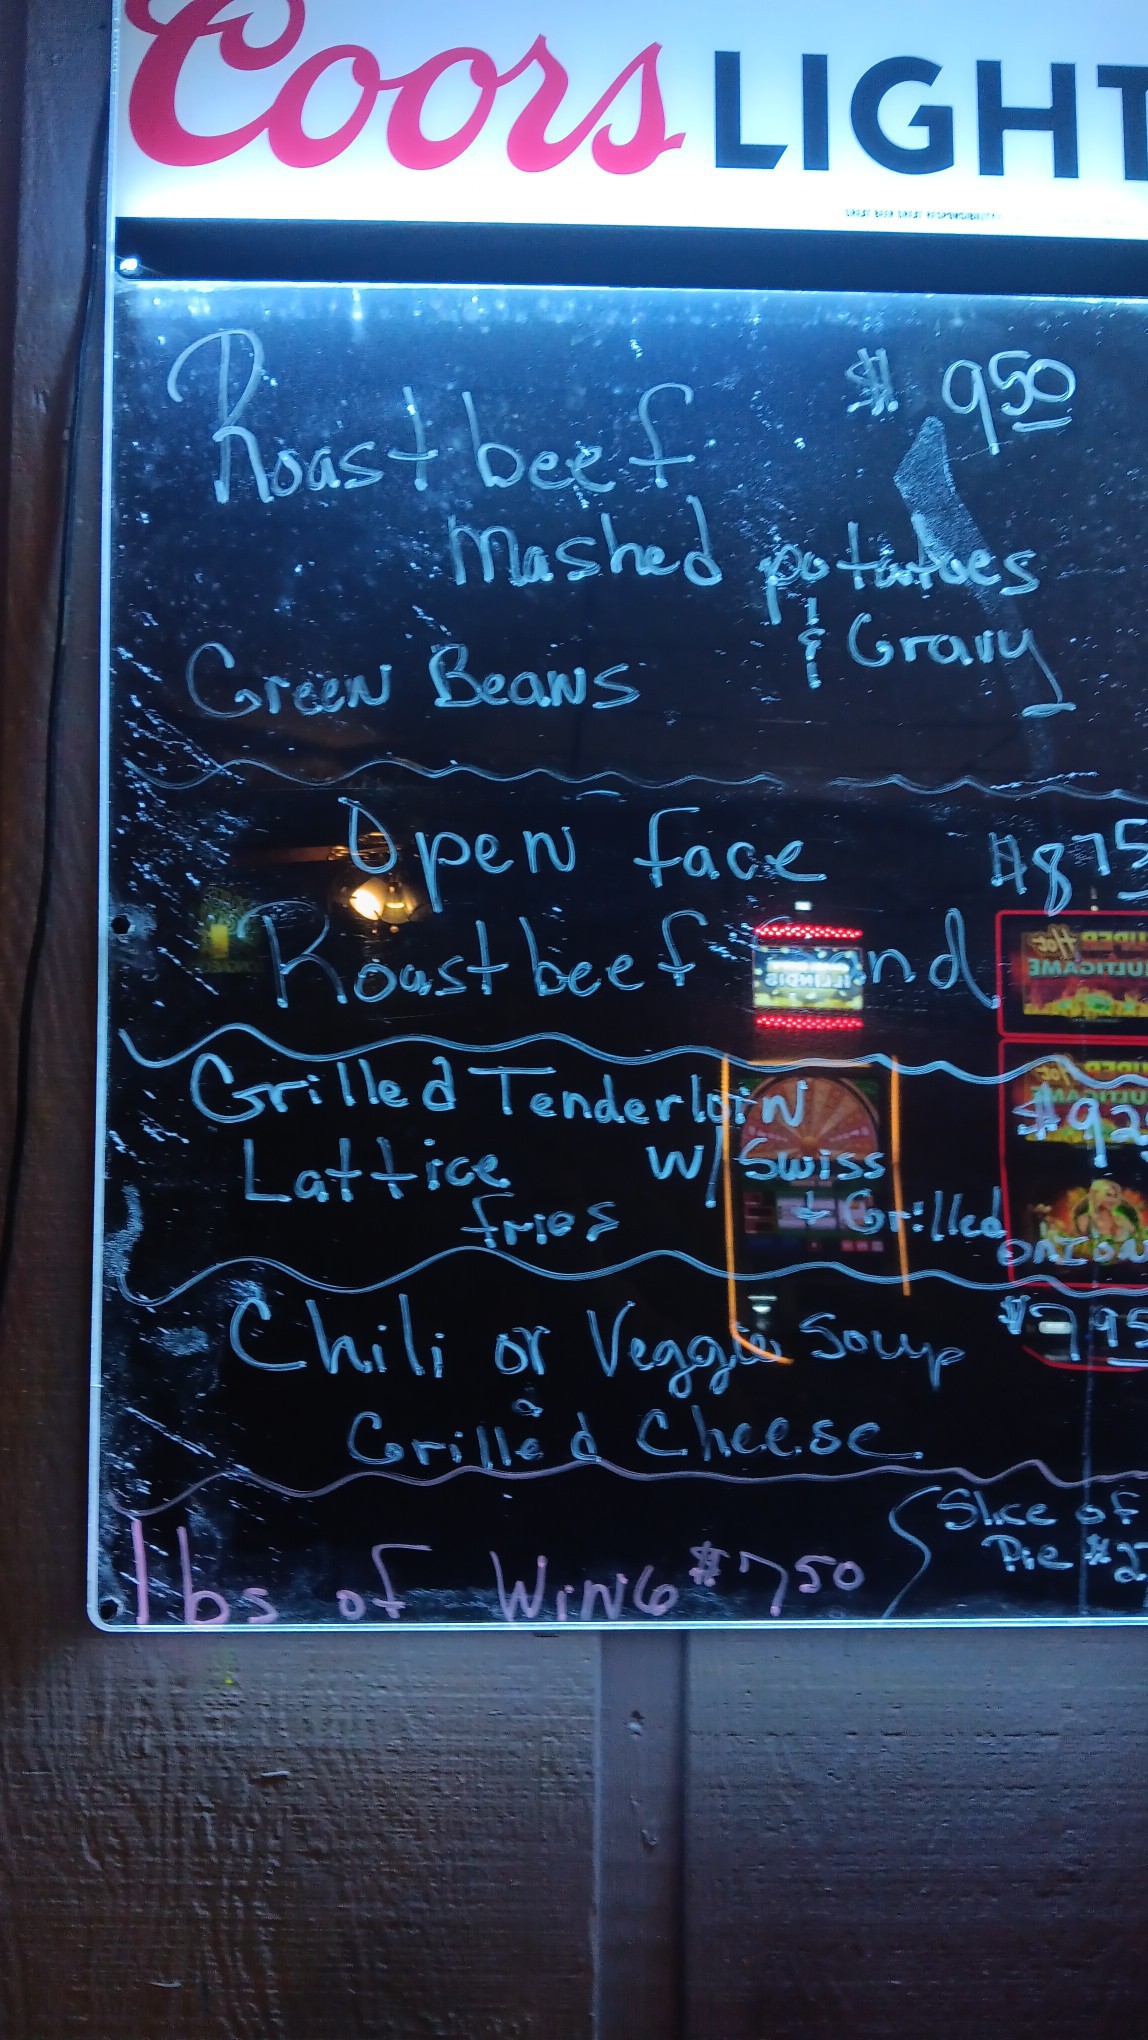 Coors LIGHT
$ 9.50
Roast beef
Mashed potatoes
& Gravy
Green Beans
Open face $8.75
Roast beef Sand.
Grilled Tenderloin $9.25
Lattice w/ Swiss
fries + Grilled
onion
Chili or Veggie Soup $7.95
&
Grilled Cheese
Slice of
Pie $2
lbs of Wing $7.50